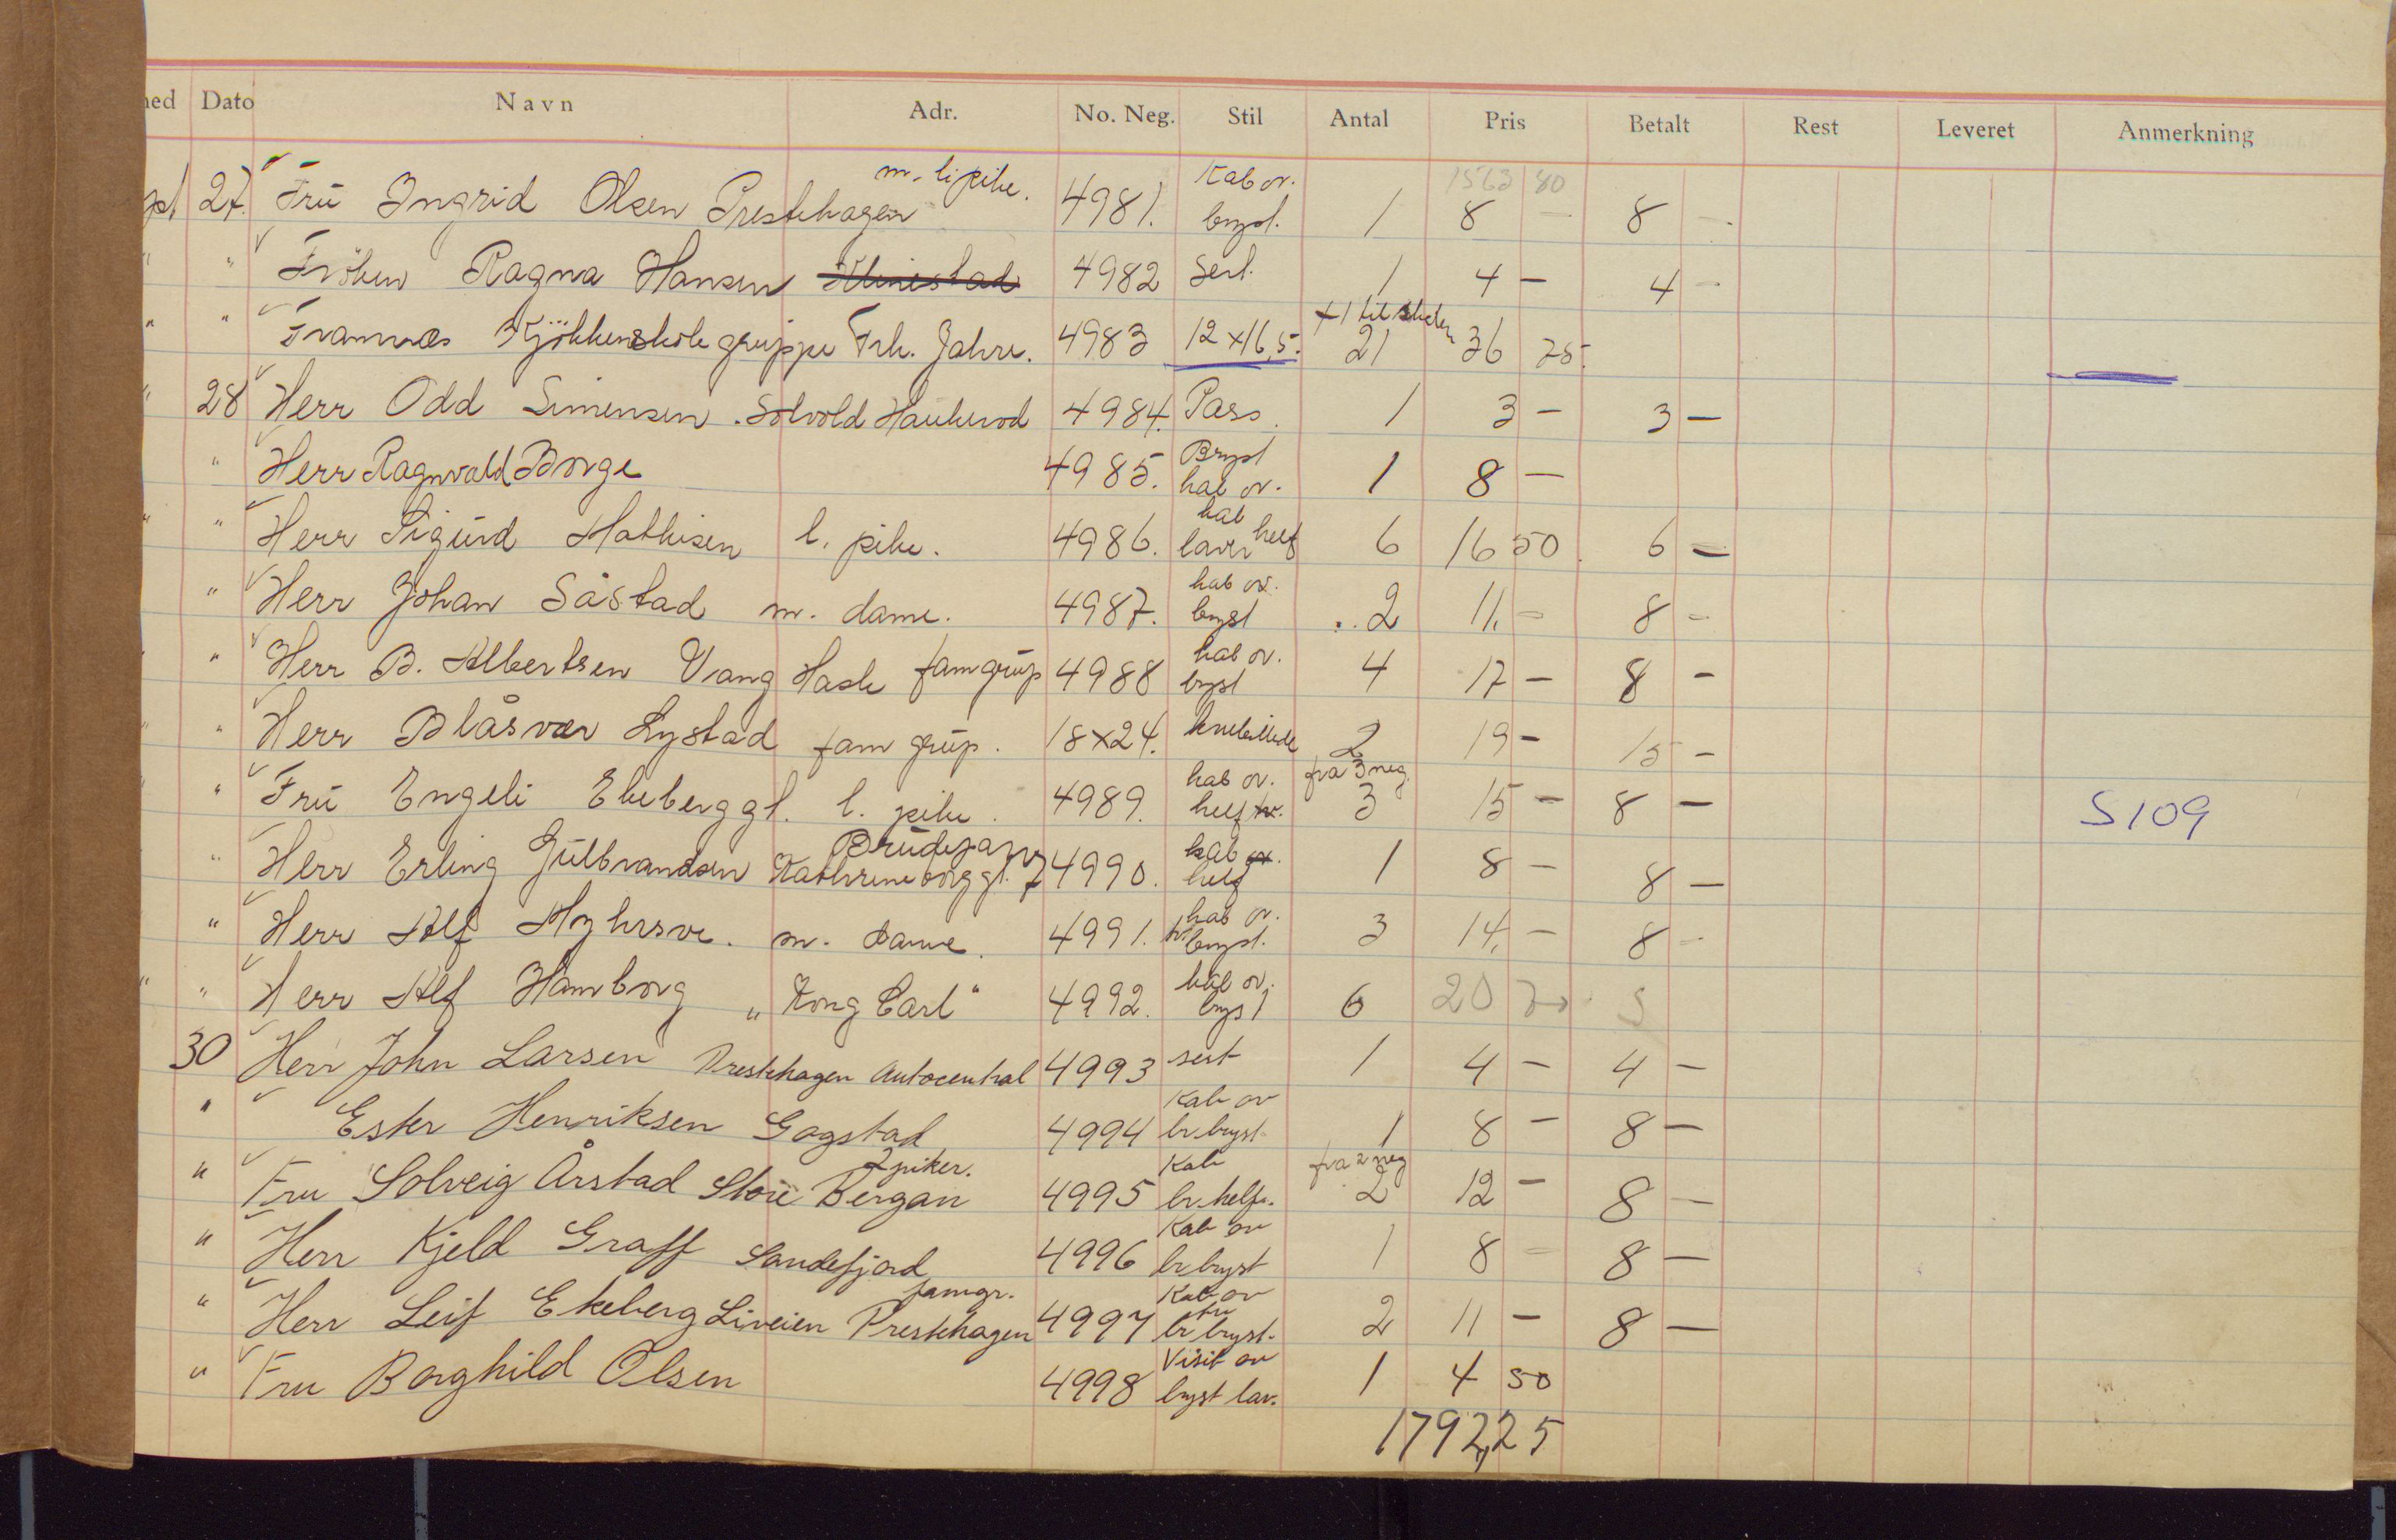 ned Dato Navn Adr. No. Neg. Stil Antal Pris Betalt Rest Leveret Anmerkning
1563 80
27. Frü Ingrid Olsen Prestehagen m. li pike. 4981. Kab ov. bryst. 1 8 — 8 —
" " Fröken Ragna Hansen 4982 Sert. 1 4 — 4 —
" " Framnæs Kjökkenskole gruppe Frk. Jahre. 4983 12 x 16,5. 21 36 75.
" 28 Herr Odd Simensen. Solvold Haukerød 4984. Pass. 1 3 — 3 —
" Herr Ragnvald Borge 4985. Bryst kab ov. 1 8 —
" " Herr Sigurd Mathisen l. pike. 4986. kab laver helf 6 16 50. 6 —
" Herr Johan Såstad m. dame. 4987. kab ov. bryst 2 11. — 8 —
" Herr B. Albertsen Vang Hasle fam grüp 4988 kab ov. bryst 4 17 — 8 —
" Herr Blåsvær Lystad fam grüp. 18x24. knebillede 2 19 — 15 —
" Frü Engeli Ekeberg gt. l. pike. 4989. kab ov. helf fra 3 neg. 3 15 — 8 — S109
" Herr Erling Gülbrandsen Brüdepar Kathrineborg gt. 7 4990. kab helf 1 8 — 8 —
" Herr Alf Myhrsve. m. dame. 4991. kab ov. bryst. 3 14. — 8 —
" " Herr Alf Hamborg "Kong Carl" 4992. kab ov. bryst 6 20 5
30 Herr John Larsen Prestehagen Autocentral 4993 sert 1 4 — 4 —
" Ester Henriksen Gogstad 4994 Kab ov br bryst 1 8 — 8 —
" Fru Solveig Årstad Store Bergan 2 piker. 4995 Kab br. helf. fra 2 neg 2 12 — 8 —
" Herr Kjeld Graff Sandefjord 4996 Kab ov br bryst 1 8 — 8 —
" Herr Leif Ekeberg Liveien Prestehagen famgr. 4997 Kab ov br bryst. 2 11 — 8 —
" Fru Borghild Olsen 4998 Visit ov bryst lav. 1 4 50
1792,25